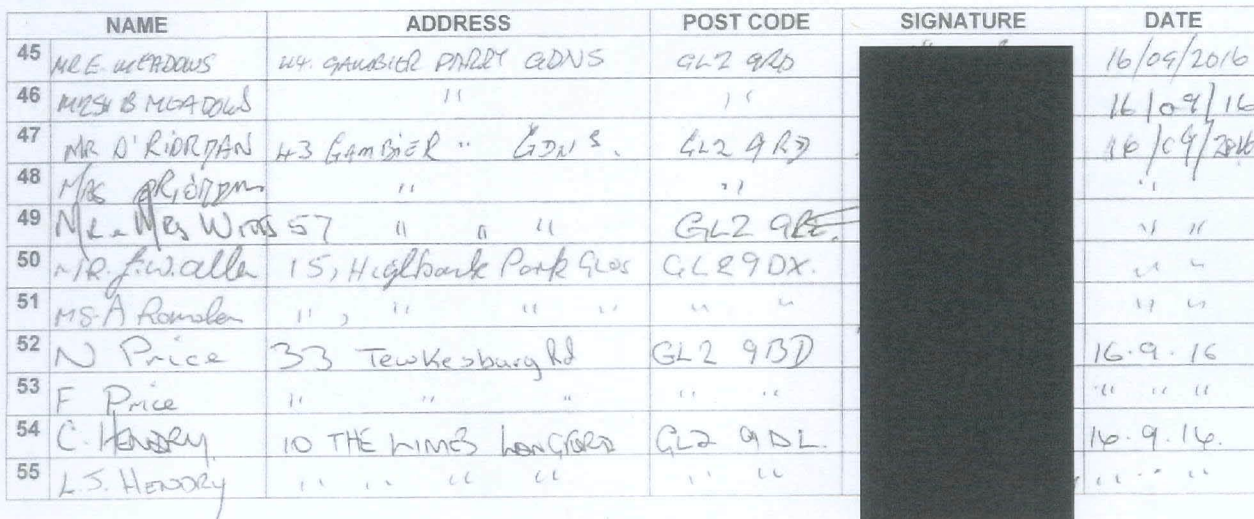 NAME ADDRESS POST CODE SIGNATURE DATE
45 MR E. MEADOWS 44. GAMBIER PARRY GDNS GL2 9RD 16/09/2016
46 B MEADOWS " " 16/09/16
47 MR O'RIORDAN 43 GAMBIER " GDNS. GL2 9RD 16/09/2016
48 MRS O'RIORDAN " " "
49 MR & MRS 57 " " " GL2 9RE " "
50 MR. 15, Highbank Park Glos GL29DX. " "
51 MS. A " , " " " " " " "
52 N Price 33 Tewkesbury Rd GL2 9BD 16.9.16
53 F Price " " " " " " " "
54 C. HENDRY. 10 THE LIMES LONGFORD GL2 9DL. 16.9.16.
55 L.S. HENDRY " " " " " " " " "